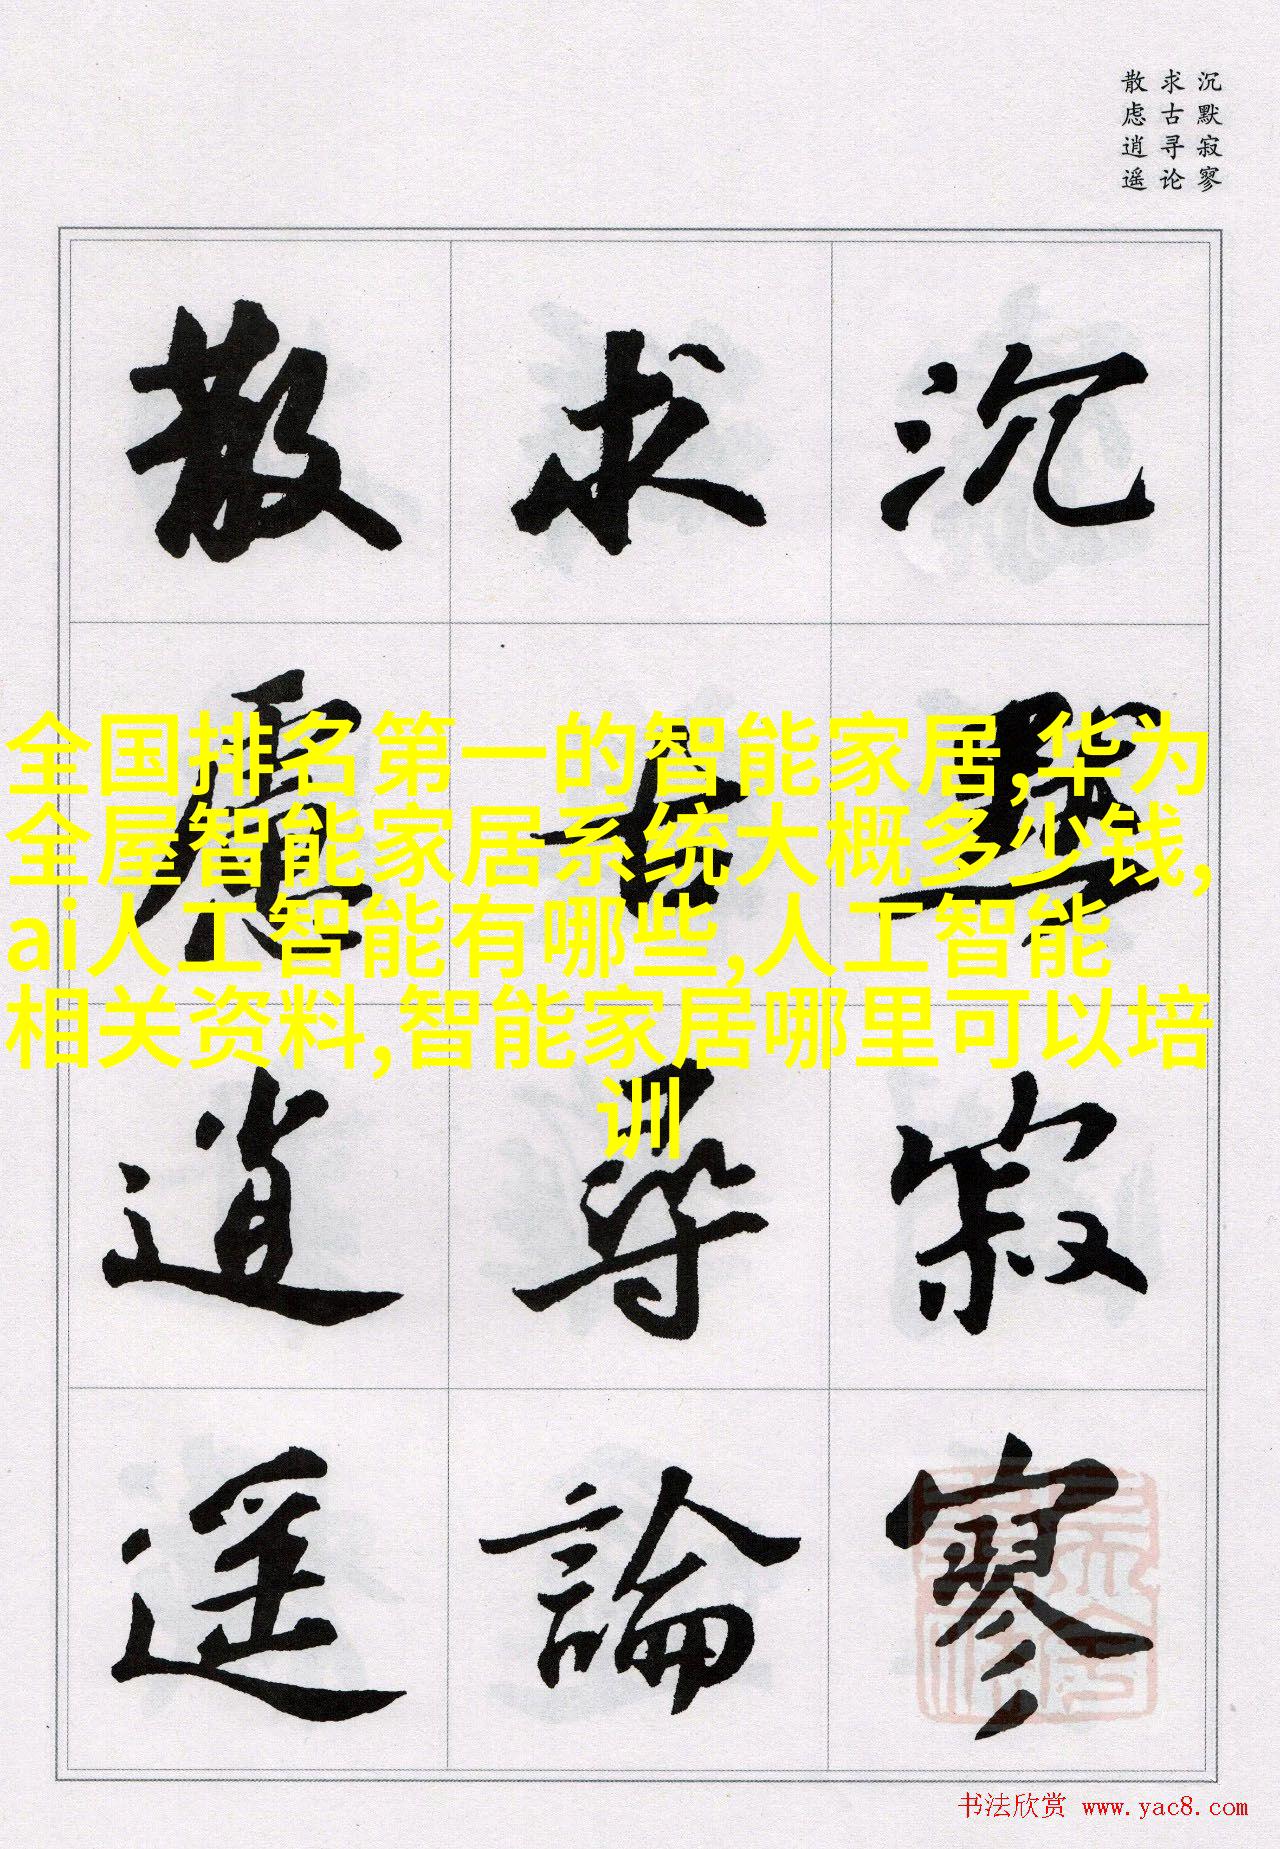 沉默寂寥
求古寻论
散虑逍遥
沉默寂寥
求古尋論
散慮逍遥
全国排名第一的智能家居,华为
全屋智能家居系统大概多少钱,
ai人工智能有哪些,人工智能
相关资料,智能家居哪里可以培
训
书法欣赏 www.yac8.com